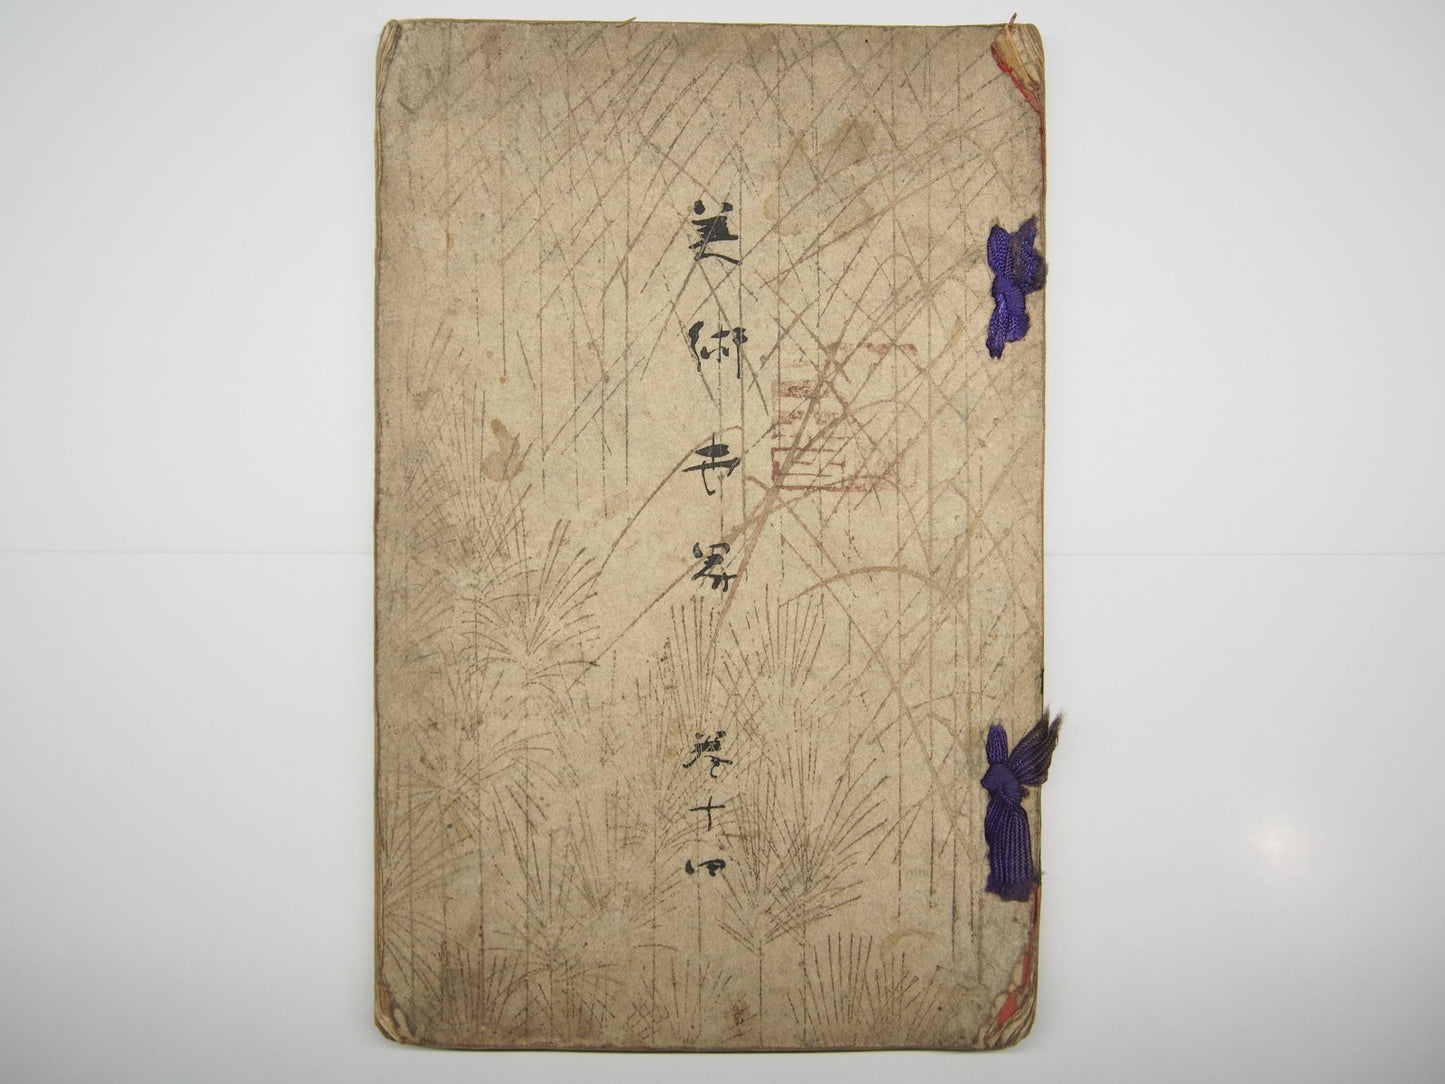 美術世界 卷十四